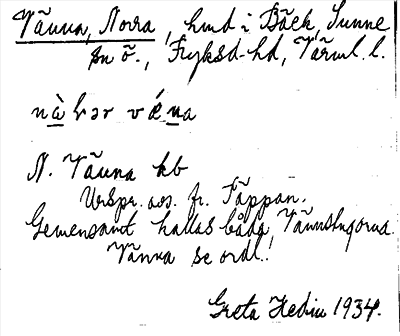 Vänna, Norra, hmd i Bäck, Sunne
sn ö., Fryksd. hd, Värml. l.
nàƕər væ̀na
N. Vänna kb
Urspr. avs. fr. Täppan.
Gemensamt kallas båda Vännstugorna.
Vänna se ordl.!
Greta Hedin 1934.